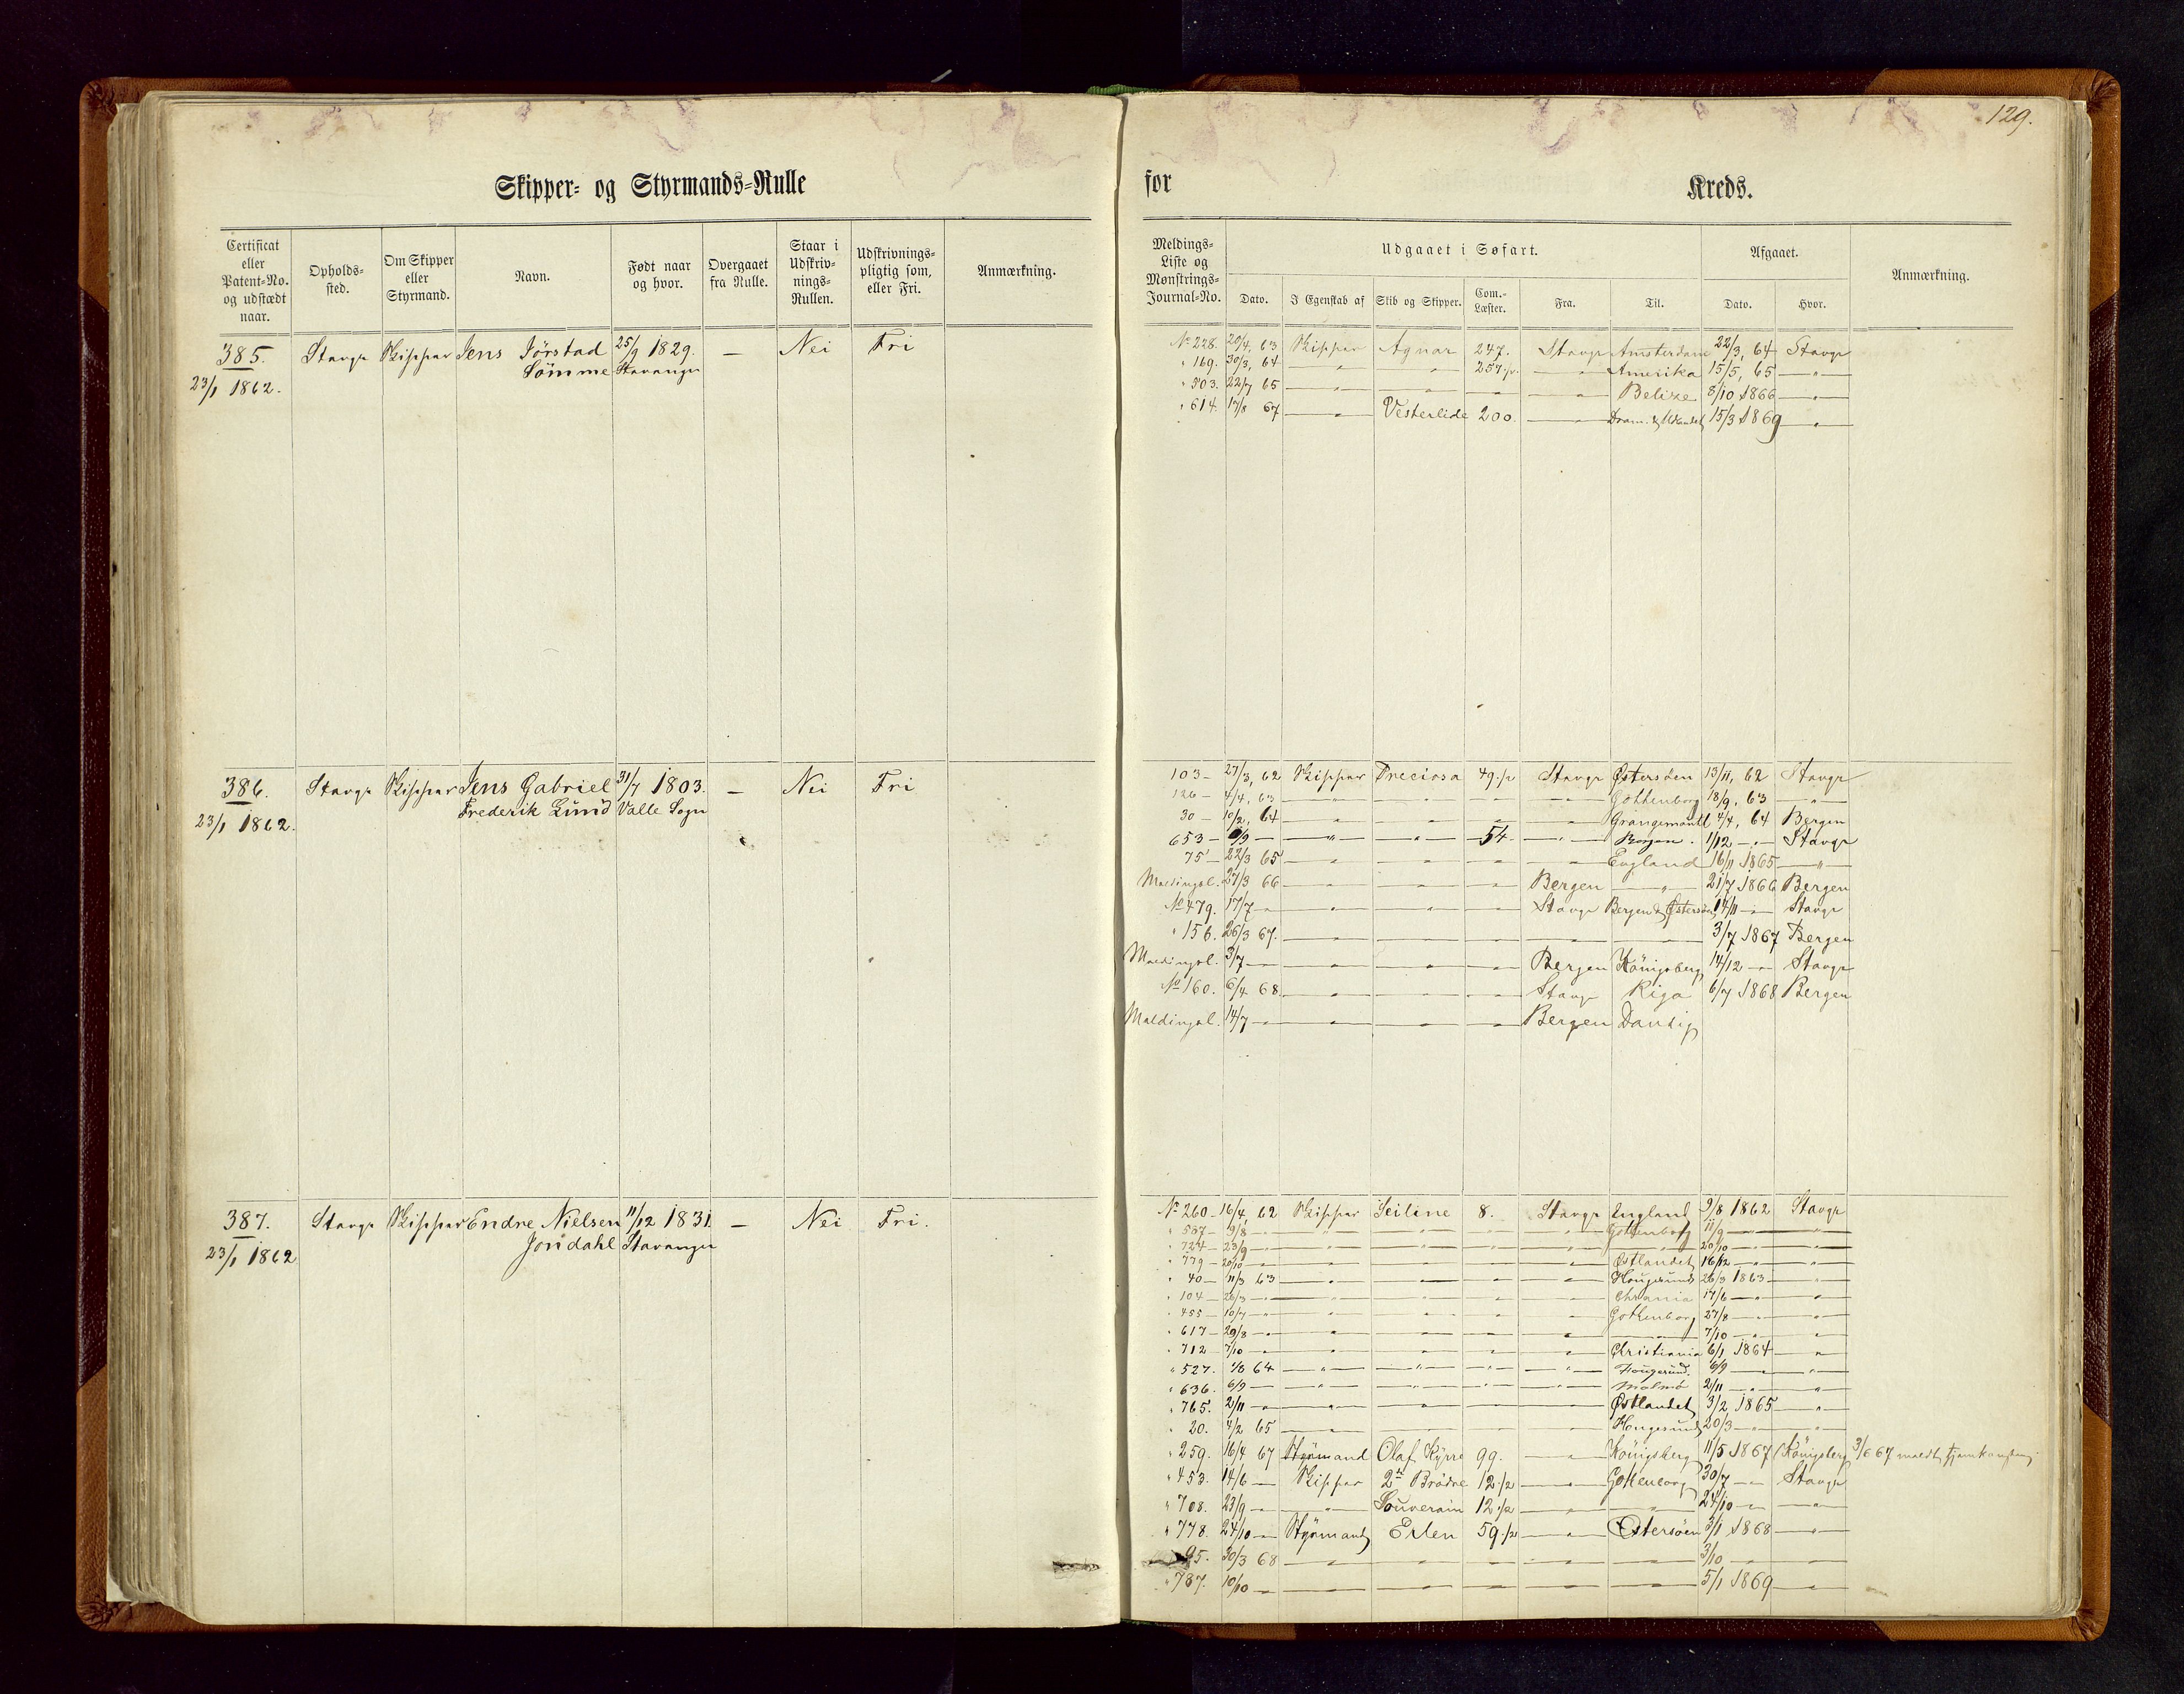 129.
Skipper- og Styrmands-Rulle for Kreds.
Certificat eller Patent-No. og udstædt naar. Opholds-sted. Om Skipper eller Styrmand. Navn. Født naar og hvor. Overgaaet fra Rulle. Staar i Udskriv-nings-Rullen. Udskrivnings-pligtig som, eller Fri. Anmærkning.
Meldings-Liste og Mønstrings-Journal-No. Udgaaet i Søfart. Afgaaet. Anmærkning.
Dato. I Egenskab af Skib og Skipper. Com.-Læster. Fra. Til. Dato. Hvor.
385. Stavgr Skipper Jens Jörstad 25/9 1829. — Nei Fri
Sömme Stavanger
23/1 1862.
No 228. 20/4, 63 Skipper Agnar 247. Stavgr Amsterdam 22/3, 64 Stavgr
" 169. 30/3, 64 — " — " 257 1/2 — " — Amerika 15/5, 65 — " —
" 303. 22/7 65 — " — " — " — " — Belize 8/10 1866 — " —
" 614. 17/8 67 — " — Vesterlide 200. — " — Dram. & Udlandet 15/3 1869 — " —
386. Stavgr Skipper Jens Gabriel 31/7 1803. — Nei Fri
Frederik Lund Valle Sogn
23/1 1862.
103 — 27/3, 62 Skipper Preciosa 49 1/2 Stavgr Østersöen 13/11, 62 Stavgr
126 — 4/4, 63 — " — " — " — " — Gottenborg 18/9, 63 — " —
30 — 10/2, 64 — " — " — " — " — Grangemouth 4/4, 64 Bergen
653 — 9/9 — " — " — 54 — " — Bergen. 1/12 — " — Stavgr
75 — 22/3 65 — " — " — " — " — England 16/11 1865 — " —
Meldingsl. 27/3 66 — " — " — " — Bergen — " — 21/7 1866 Bergen
No 479. 17/7 — " — " — " — " — Stavgr Bergen & Østersöen 14/11 — " — Stavgr
" 156. 26/3 67. — " — " — " — 3/7 1867 Bergen
Meldingsl. 3/7 — " — " — " — " — Bergen Königsberg 14/12 — " — Stavgr
No 160. 6/4 68 — " — " — " — Stavgr Riga 6/7 1868 Bergen
Meldingsl. 14/7 — " — " — " — " — Bergen Dantzig
387. Stavgr Skipper Endre Nielsen 11/12 1831. — Nei Fri.
Jondahl Stavanger
23/1 1862
No 260 — 16/4, 62 Skipper Seiline 8. Stavgr England 9/8 1862 Stavgr
" 587 — 9/8 — " — " — " — " — Gottenborg 11/9 — " —
" 724 — 23/9 — " — " — " — " — " — 20/10 — " —
" 779 — 20/10 — " — " — " — " — Østlandet 16/12 — " —
" 40 — 11/3 63 — " — " — " — " — Hougesund 26/3 1863 — " —
" 104 — 26/3 — " — " — " — " — Chrania 17/6 — " —
" 455 — 10/7 — " — " — " — " — Gothenborg 27/8 — " —
" 617 — 29/8 — " — " — " — " — 7/10 — " —
" 712 — 7/10 — " — " — " — " — Christiania 6/1 1864 — " —
" 527. 1/8 64 — " — " — " — " — Hougesund. 6/9 — " —
" 636. 6/9 — " — " — " — " — Malmö 2/11 — " —
" 765. 2/11 — " — " — " — " — Østlandet 3/2 1865 — " —
" 20. 4/2 65 — " — " — " — " — Hougesund 20/3 — " —
" 259. 16/4 67 Styrmand Olaf Kyrre 99. — " — Königsberg 11/5 1867 Königsberg 3/6 67 meldt hjemkomsten
" 453. 14/6 — Skipper 2de Brödre 12 1/2 — " — Gottenborg 30/7 — " — Stavgr
" 708. 23/9 — " — " Souverain 12 1/2 — " — " — 24/10 — " —
" 778. 24/10 — " Styrmand Erlen 59 1/2 — " — Østersöen 3/1 1868 — " —
95. 30/3 68 — " — " — " — " — 3/10 — " —
" 787. 10/10 — " — " — " — " — 5/1 1869 — " —